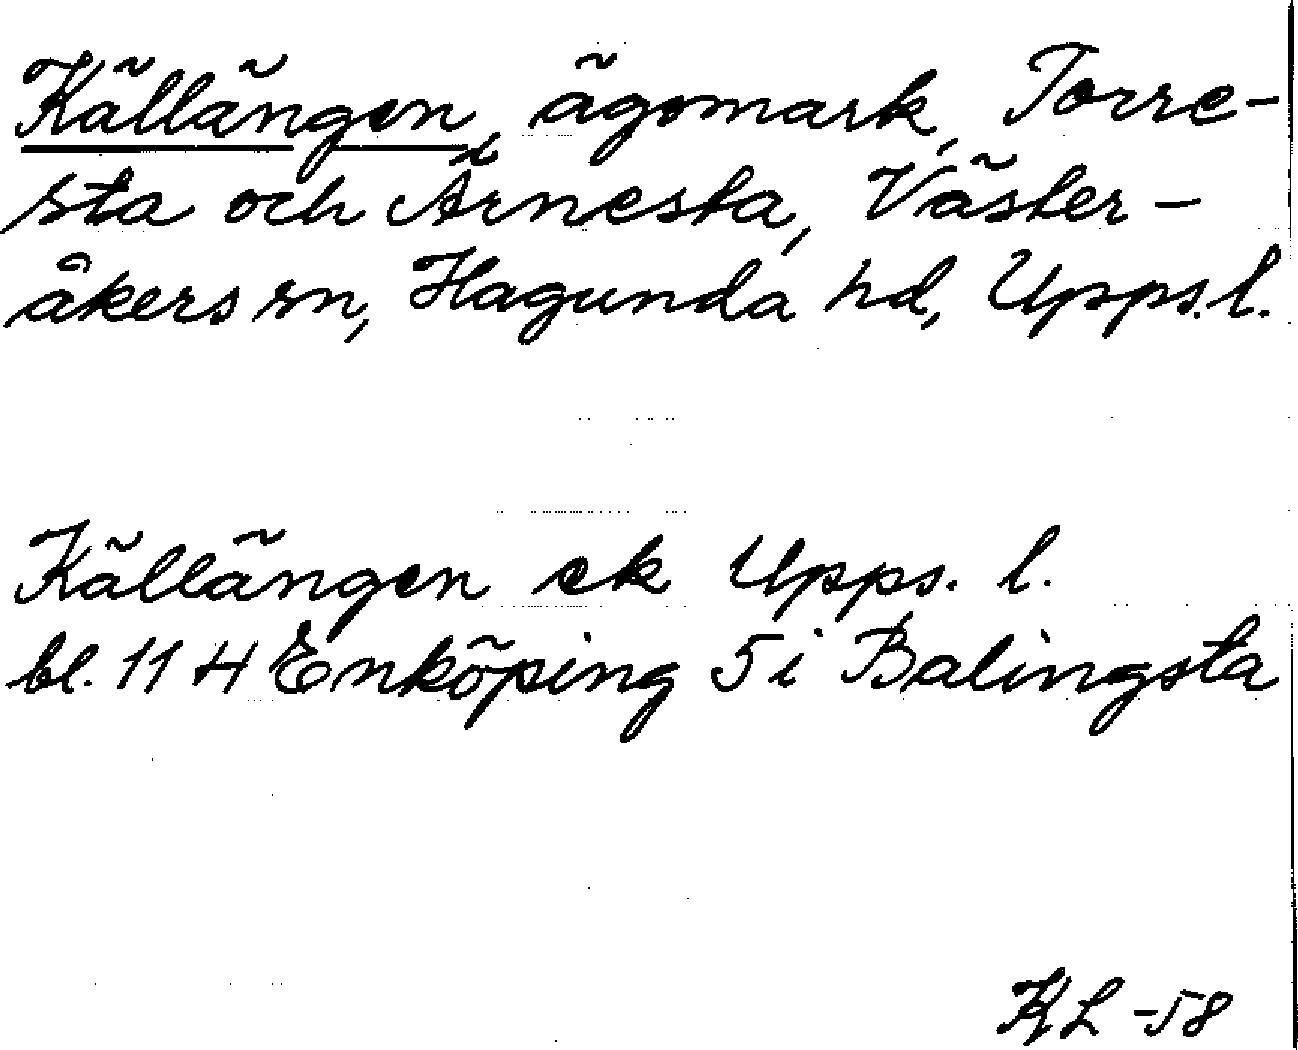 Källängen, ägomark, Torre-
sta och Ärnesta, Väster-
åkers sn, Hagunda hd, Upps.l.
Källängen ek Upps. l.
bl. 11 H Enköping 5 i Balingsta
KL -58